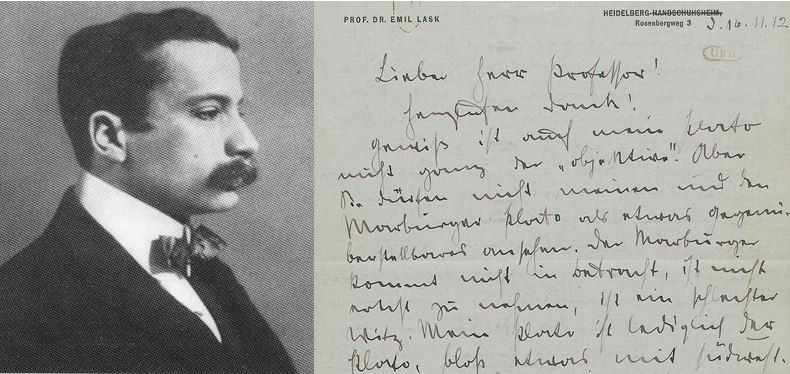 PROF. DR. EMIL LASK
HEIDELBERG-HANDSCHUHSHEIM,
Rosenbergweg 3
16.11.12
Lieber Herr Professor!
Herzlichen Dank!
Gewiß ist auch mein Plato
nicht ganz der „objektive". Aber
Sie dürfen nicht meinen und den
Marburger Plato als etwas Gegenü-
berstellbares ansehen. Der Marburger
kommt nicht in Betracht, ist nicht
ernst zu nehmen, ist ein schlechter
Witz. Mein Plato ist lediglich der
Plato, bloß etwas mit südwest.